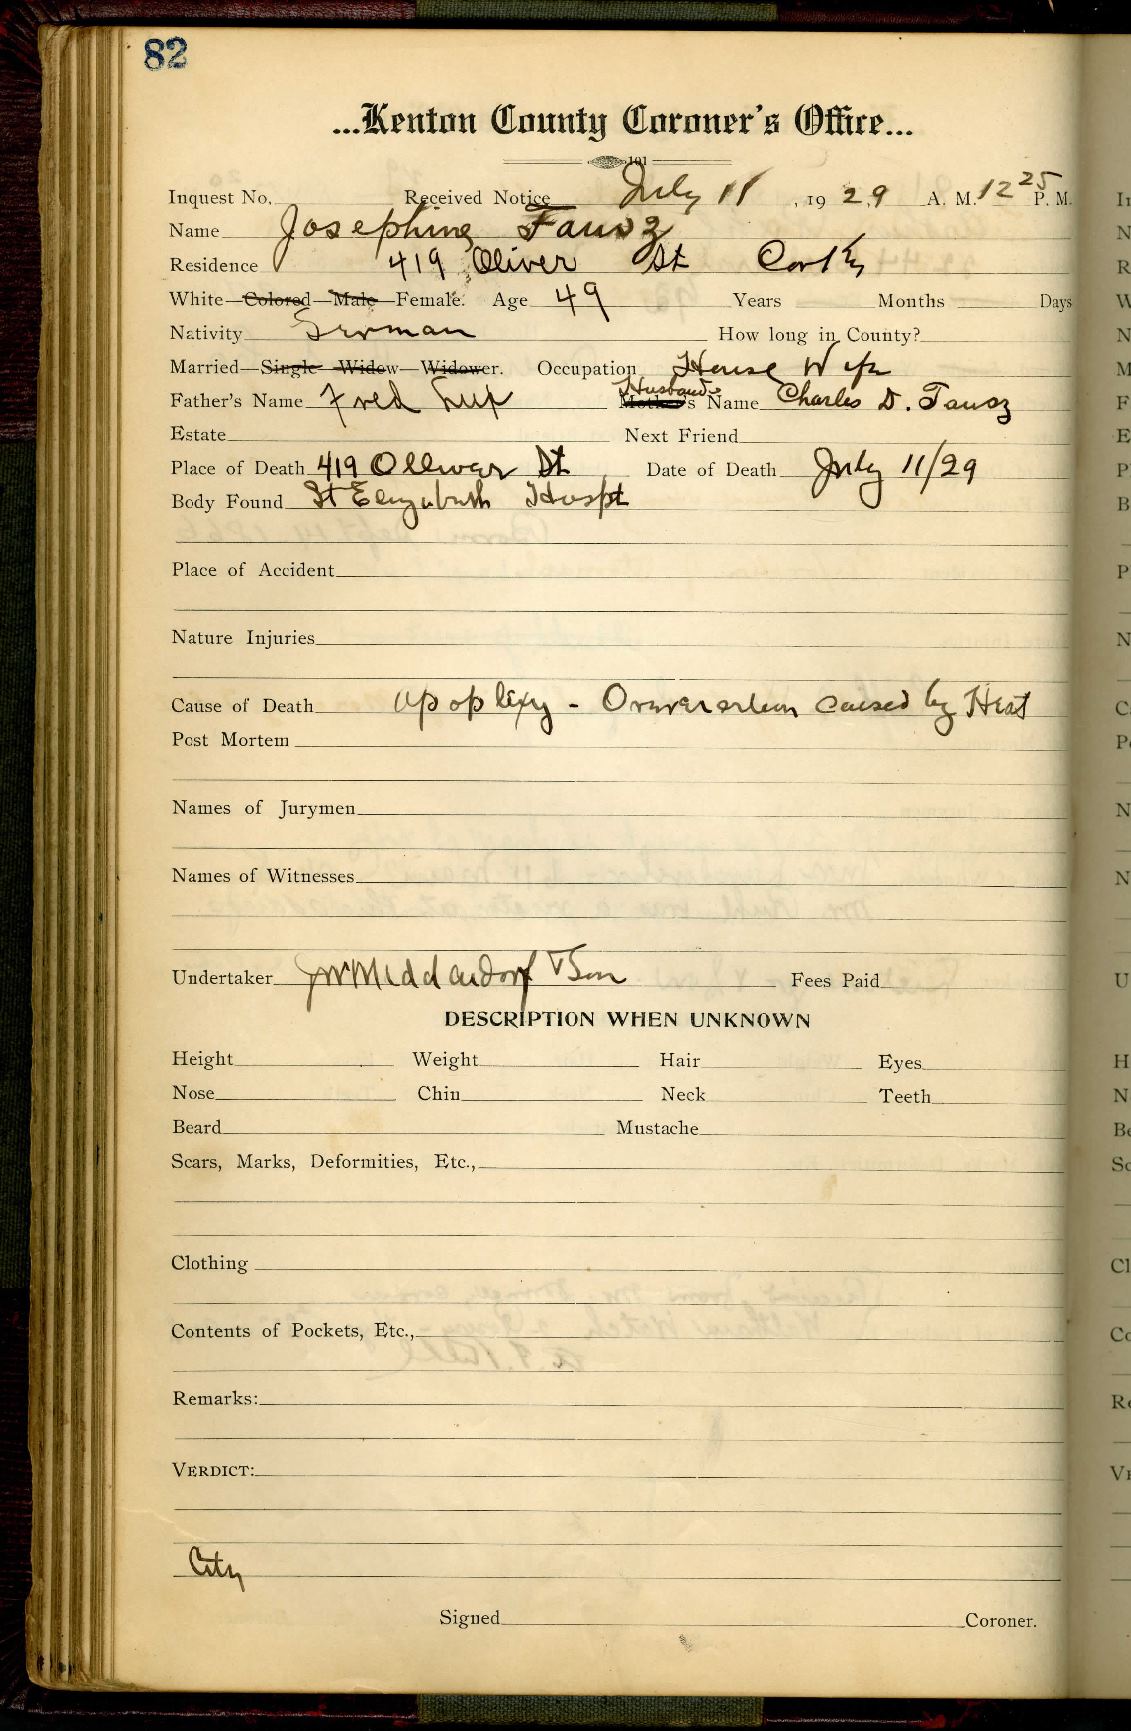 82
...Kenton County Coroner's Office...
101
Inquest No. Received Notice July 11, 1929 A. M. 12 25 P. M.
Name Josephine Fausz
Residence 419 Oliver St Cov Ky
White—Colored—Male—Female. Age 49 Years Months Days
Nativity German How long in County?
Married—Single—Widow—Widower. Occupation House Wife
Husband
Father's Name Fred Mother's Name Charles D. Fausz
Estate Next Friend
Place of Death 419 Ollivar St Date of Death July 11/29
Body Found St Elizabeth Hospt
Place of Accident
Nature Injuries
Cause of Death apoplexy - caused by Heat
Post Mortem
Names of Jurymen
Names of Witnesses
Undertaker JW Middendorf & Son Fees Paid
DESCRIPTION WHEN UNKNOWN
Height Weight Hair Eyes
Nose Chin Neck Teeth
Beard Mustache
Scars, Marks, Deformities, Etc.,
Clothing
Contents of Pockets, Etc.,
Remarks:
VERDICT:
City
Signed Coroner.